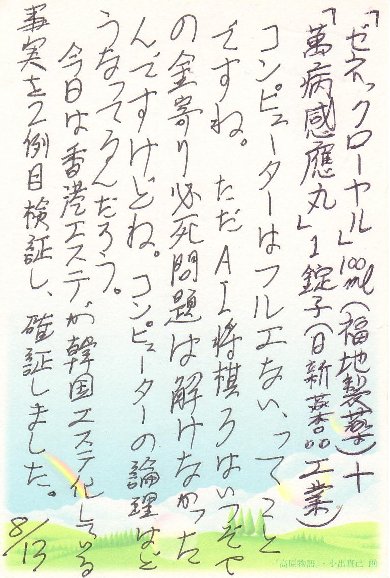 「ゼネックローヤル」100ml(福地製薬)+
「萬病感應丸」1錠子(日新薬品工業)
コンピューターはフルエない、ってこと
ですね。ただAI将棋ろはいつぞや
の金寄り必死問題は解けなかった
んですけどね。コンピューターの論理はど
うなってるんだろう。
今日は香港エステが韓国エステ化している
事実を2例目検証し、確証しました。
8/13
「高原物語」・小出真己 画